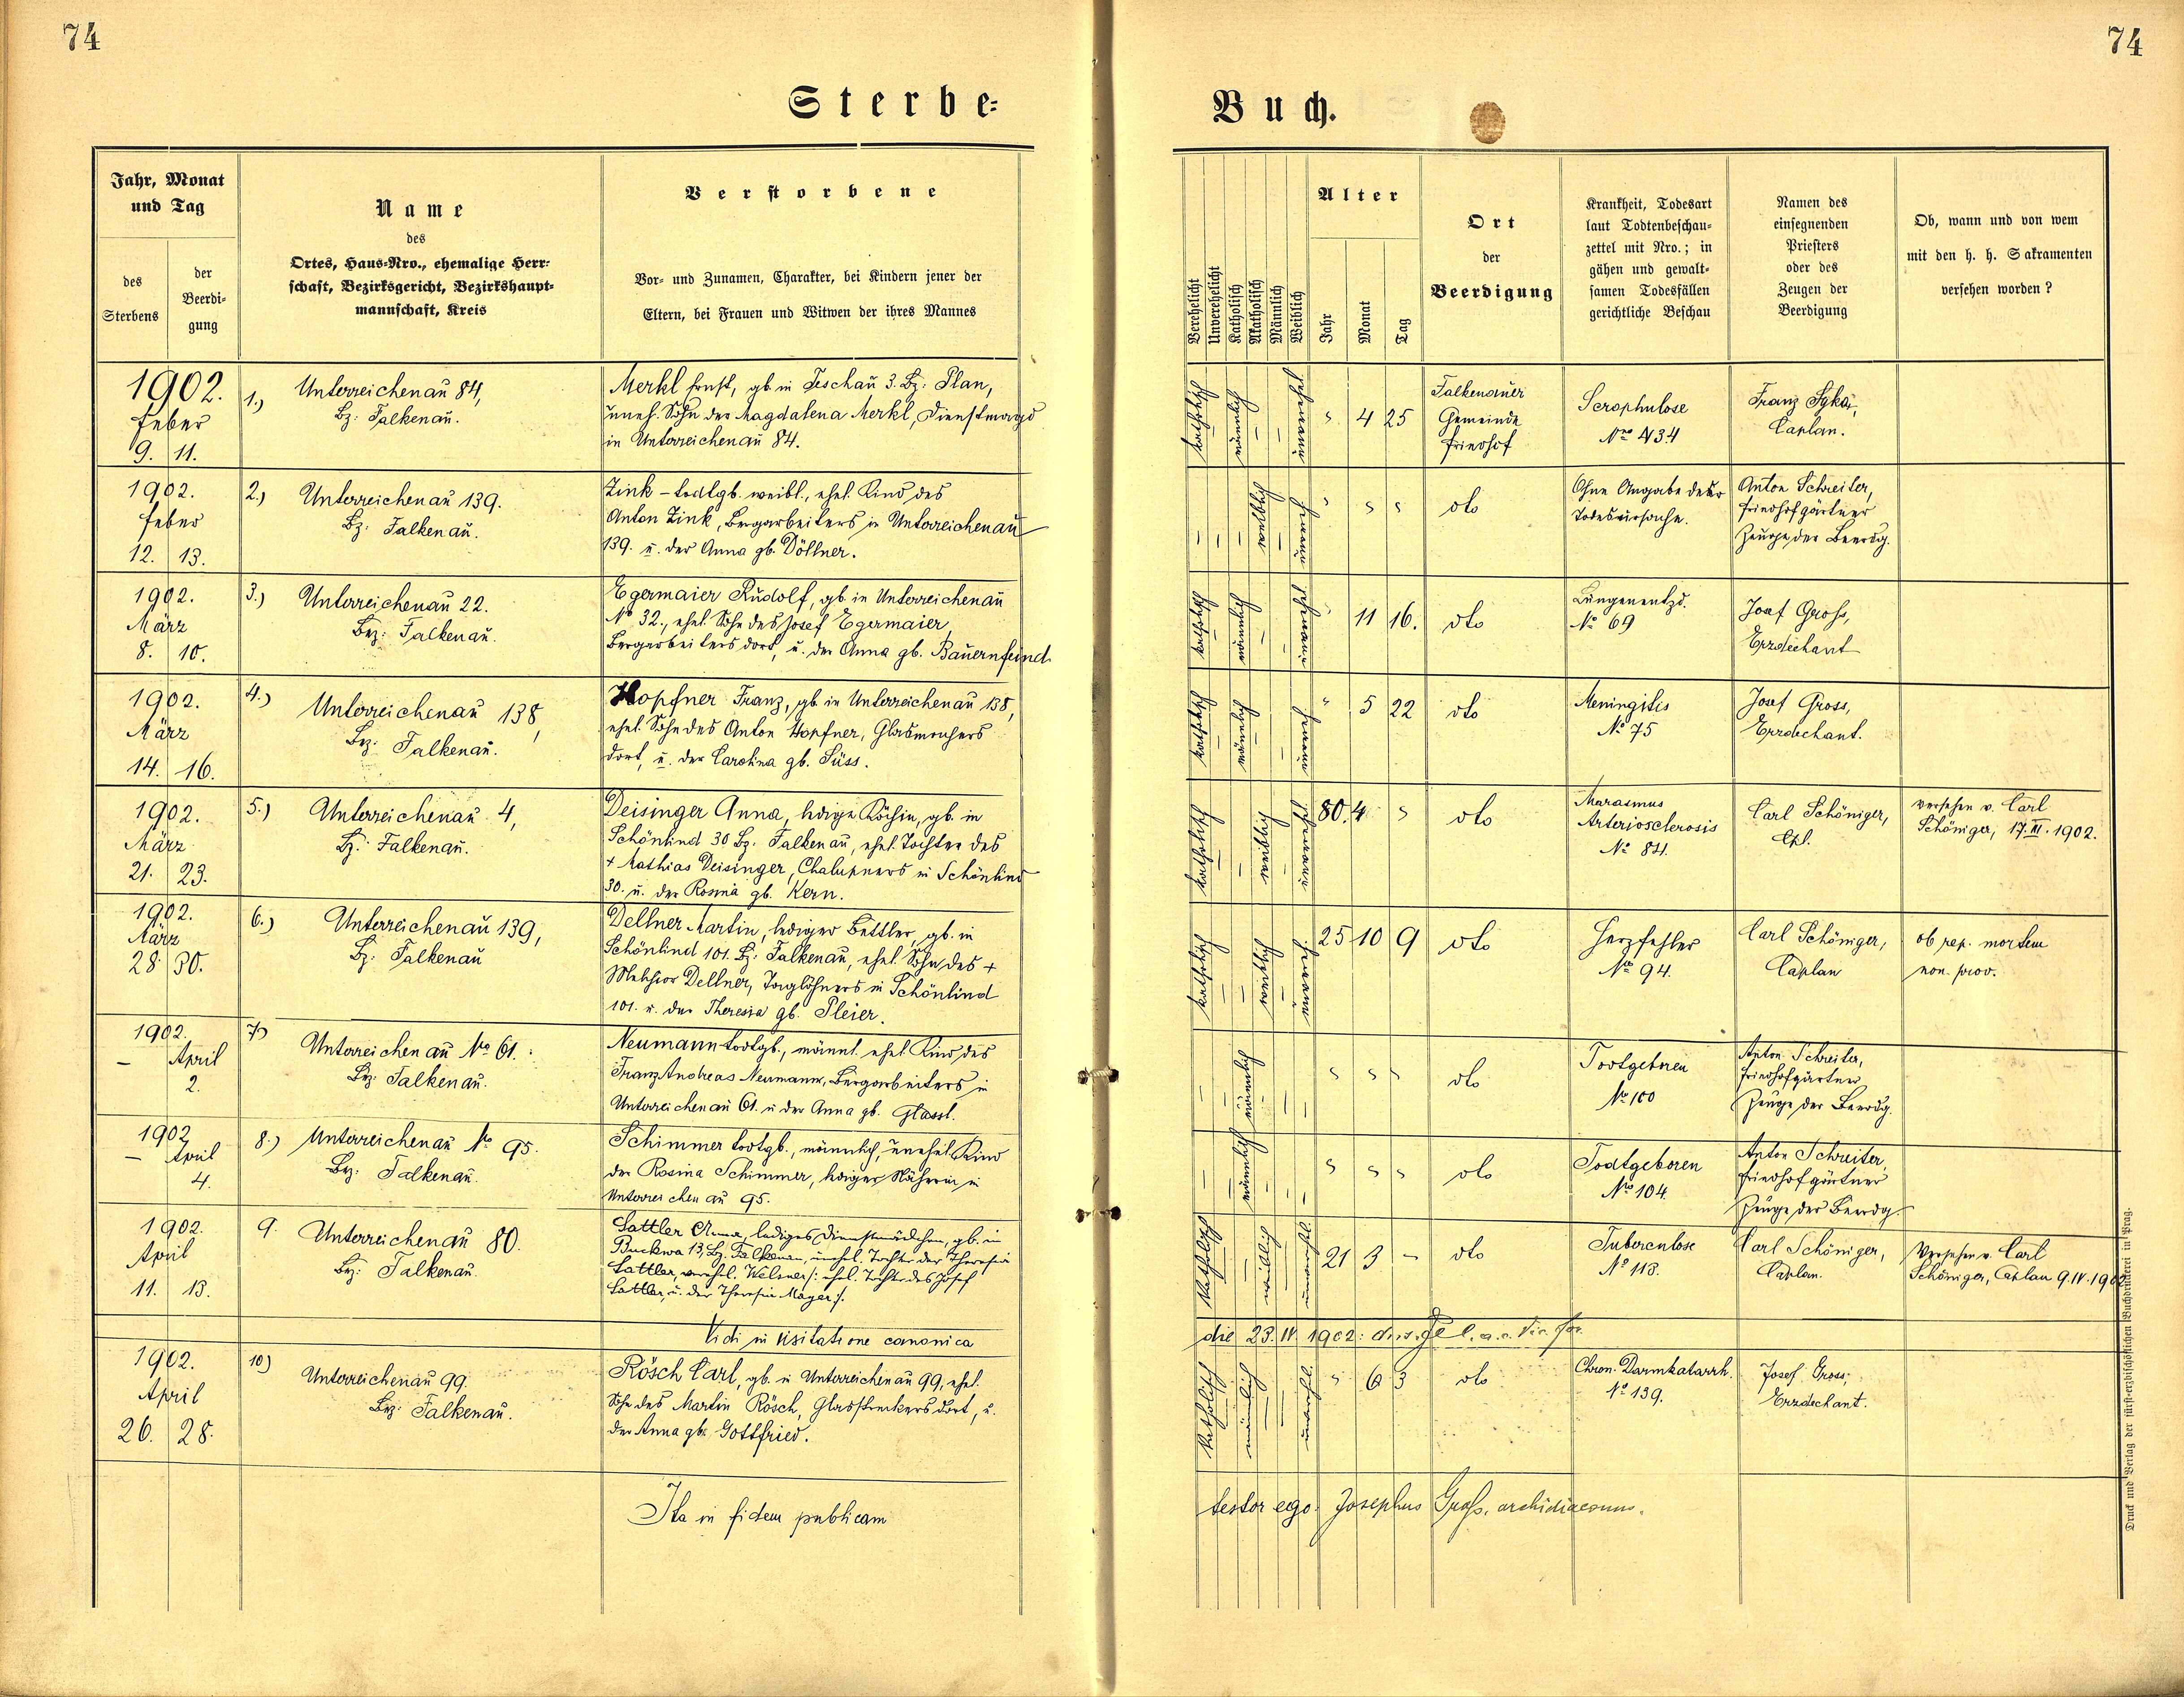 74
74
Sterbe=
Buch.
Jahr, Monat
und Tag
des
Sterbens
der
Beerdi-
gung
Name
des
Ortes, Haus-Nro., ehemalige Herr-
schaft, Bezirksgericht, Bezirkshaupt-
mannschaft, Kreis
Verstorbene
Vor- und Zunamen, Charakter, bei Kindern jener der
Eltern, bei Frauen und Witwen der ihres Mannes
Verehelicht
Unverehelicht
Katholisch
Akatholisch
Männlich
Weiblich
Alter
Jahr
Monat
Tag
Ort
der
Beerdigung
Krankheit, Todesart
laut Todtenbeschau-
zettel mit Nro.; in
gähen und gewalt-
samen Todesfällen
gerichtliche Beschau
Namen des
einsegnenden
Priesters
oder des
Zeugen der
Beerdigung
Ob, wann und von wem
mit den h. h. Sakramenten
versehen worden ?
1902.
Feber
9. 11.
1.)
Unterreichenau 84,
Bz: Falkenau.
Merkl Ernst, gb. in Teschau 3. Bz: Plan,
uneh. Sohn der Magdalena Merkl, Dienstmagd
in Unterreichenau 84.
katholisch
männlich
4 25
Falkenauer
Gemeinde
Friedhof
Scrophulose
Caplan.
1902.
Feber
12. 13.
2.)
Unterreichenau 139.
Bz: Falkenau.
Zink - todtgb. weibl., ehel. Kind des
Anton Zink, Bergarbeiters in Unterreichenau
139. u. der Anna gb. Döllner.
weiblich
dto
Ohne Angabe der
Todesursache.
Anton Schreiter,
Friedhofgärtner
Zeuge der Beerdg.
1902.
März
8. 10.
3.)
Unterreichenau 22.
Bez: Falkenau.
Egermaier Rudolf, gb. in Unterreichenau
No 32., ehel. Sohn des Josef Egermaier,
Bergarbeiters dort, u. der Anna gb. Bauernfeind
katholisch
männlich
11 16.
dto
Lungenentzd.
No 69
Josef Gross,
Erzdechant
1902.
März
14. 16.
4.)
Unterreichenau 138,
Bez: Falkenau.
Hopfner Franz, gb. in Unterreichenau 138,
ehel. Sohn des Anton Hopfner, Glasmachers
dort, u. der Carolina gb. Süss.
katholisch
männlich
5 22
dto
Meningitis
No 75
Josef Gross,
Erzdechant.
1902.
März
21. 23.
5.)
Unterreichenau 4,
Bz: Falkenau.
Deisinger Anna, ledige Köchin, gb. in
Schönlind 30 Bz. Falkenau, ehel. Tochter des
+ Mathias Deisinger, Chalupners in Schönlind
30. u. der Rosina gb. Kern.
katholisch
weiblich
80. 4
dto
Marasmus
Arteriosclerosis
No 84.
Carl Schöniger,
Cpl.
versehen v. Carl
Schöniger, 17. III. 1902.
1902.
März
28. 30.
6.)
Unterreichenau 139,
Bz: Falkenau
Dellner Martin, lediger Bettler, gb. in
Schönlind 101. Bz: Falkenau, ehel. Sohn des +
Melchior Dellner, Taglöhners in Schönlind
101. u. der Theresia gb. Pleier.
katholisch
25 10 9
dto
Herzfehler
No 94.
Carl Schöniger,
Caplan
ob rep. mortem
non prov.
1902.
– April
2.
7)
Unterreichenau No 61.
Bz: Falkenau.
Neumann todtgb., männl. ehel. Kind des
Franz Andreas Neumann, Bergarbeiters in
Unterreichenau 61. u der Anna gb. Glassl.
männlich
dto
No 100
Anton Schreiter,
Friedhofgärtner
Zeuge der Beerdg.
1902
– April
4.
8.)
Unterreichenau No 95.
Bz: Falkenau.
Schimmer todtgb., männlich, unehel. Kind
der Rosina Schimmer, lediger Näherin in
Unterreichenau 95.
männlich
dto
Todtgeboren
No 104.
Anton Schreiter,
Friedhofgärtner
Zeuge der Beerdg.
1902.
April
11. 13.
9.
Unterreichenau 80.
Bz: Falkenau.
Sattler Anna, lediges Dienstmädchen, gb. in
Buckwa 13, Bz. Falkenau, unehel. Tochter der Theresia
Sattler, verehel. Welsner /: ehel. Tochter des Josef
Sattler, u. der Theresia Mayer :/.
katholisch
weiblich
unverehl.
21 3 –
dto
Tuberculose
No 113.
Carl Schöniger,
Caplan.
Versehen v. Carl
Schöniger, Caplan 9. IV. 1902
Vidi in visitatione canonica
die 23. IV. 1902:
1902.
April
26. 28.
10)
Unterreichenau 99.
Bez: Falkenau.
Rösch Carl, gb. in Unterreichenau 99, ehel.
Sohn des Martin Rösch, Glasstreckers dort, u.
der Anna gb. Gottfried.
katholisch
männlich
unverehl.
6 3
dto
Chron. Darmkatarrh.
No 139.
Josef Gross,
Erzdechant.
Ita in fidem publicam
testor ego Josephus Gross, archidiaconus.
Druck und Verlag der fürst-erzbischöflichen Buchdruckerei in Prag.